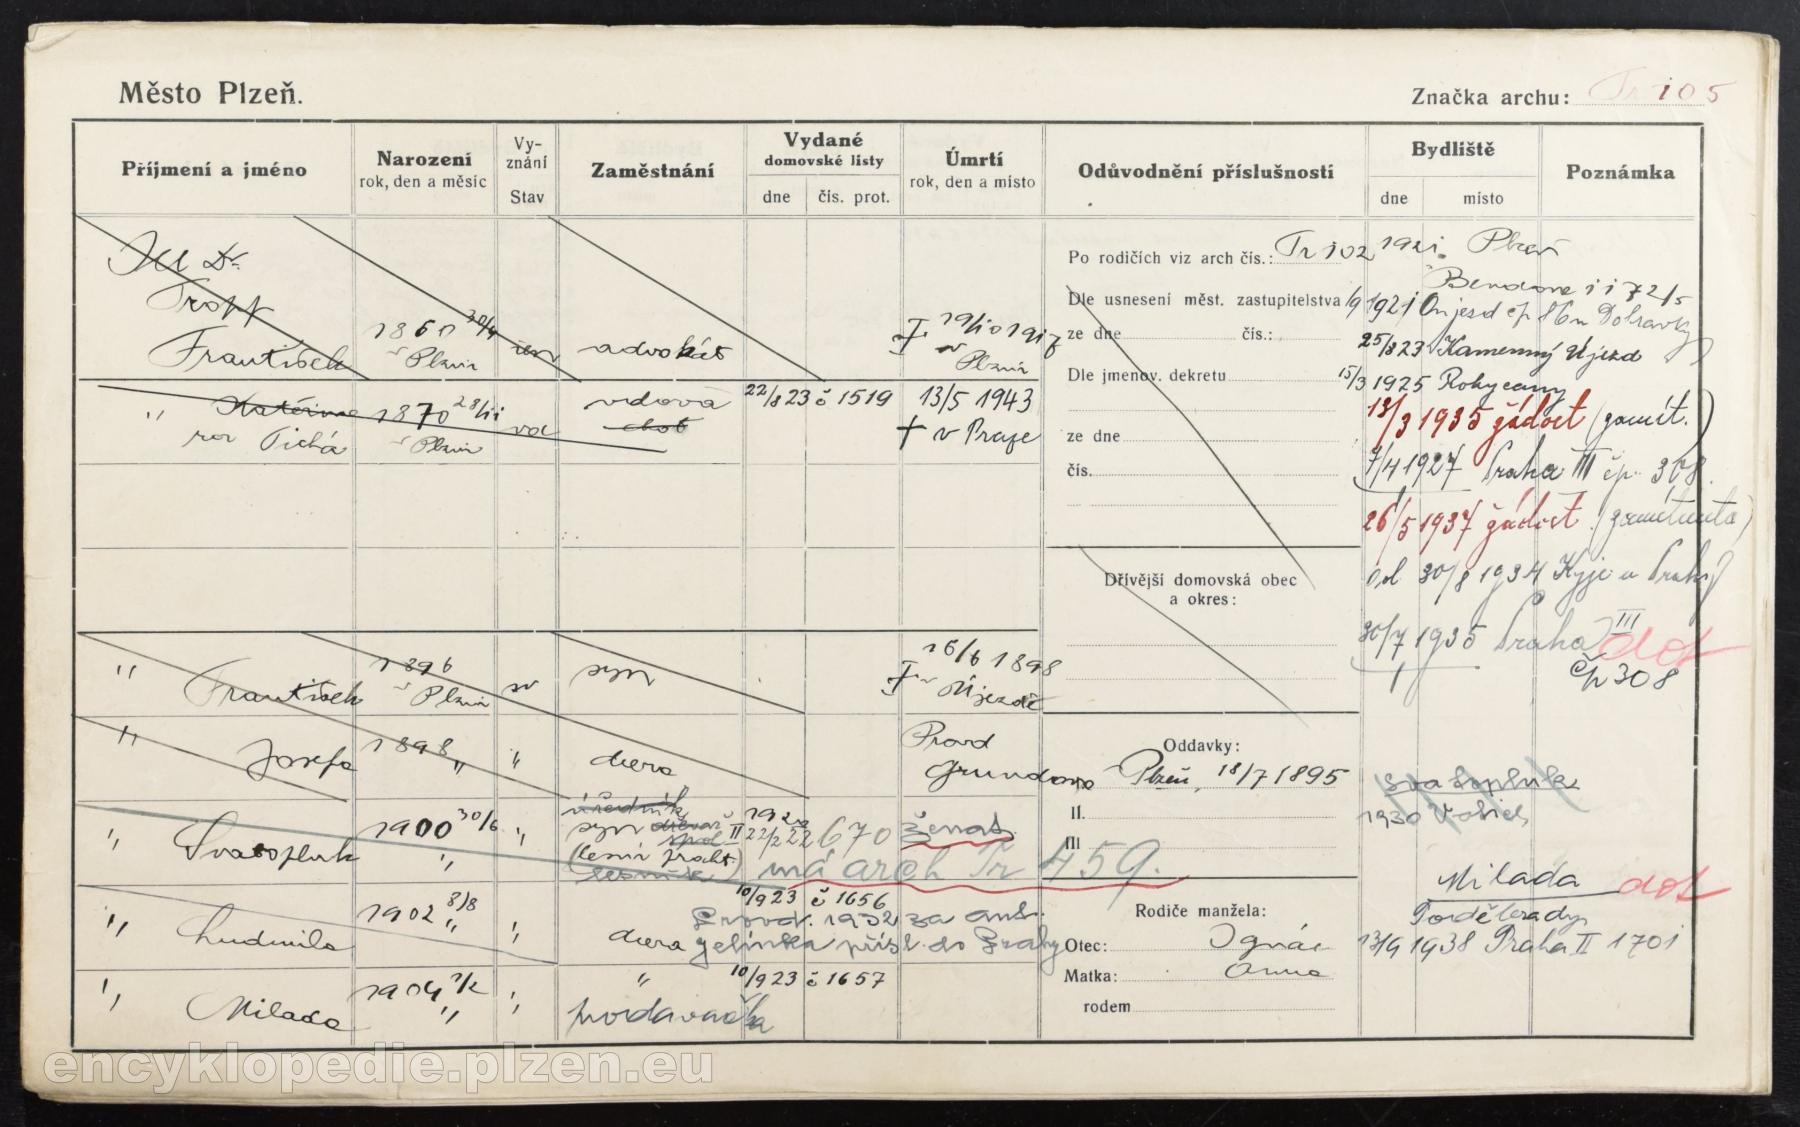 Město Plzeň.
Značka archu: Tr 105
Příjmení a jméno
Narození
rok, den a měsíc
Vyznání
Stav
Zaměstnání
Vydané
domovské listy
dne
čís. prot.
Úmrtí
rok, den a místo
Odůvodnění příslušnosti
Bydliště
dne
místo
Poznámka
Dr.
Tropp
František
1860 30/4
v Plzni
žen
advokát
19/10 1917
v Plzni
" Kateřina
roz Tichá
1870 28/11
v Plzni
vd
vdova
choť
22/8 23 č 1519
13/5 1943
† v Praze
" František
1896
v Plzni
sv
syn
16/6 1898
v Újezdě
" Josefa
1898 "
"
dcera
Provd
Grundova
" Svatopluk
1900 30/6
"
"
úředník
syn
spol II
(lesní prakt.)
1922
22/2 22 670
ženat.
má arch Tr 459.
" Ludmila
1902 8/8
"
"
dcera
10/9 23 č 1656
Provd. 1932 za Ant.
Jelínka přísl. do Prahy
" Milada
1904 7/2
"
"
"
prodavačka
10/9 23 č 1657
Po rodičích viz arch čís.: Tr 102
Dle usnesení měst. zastupitelstva
ze dne
čís.:
Dle jmenov. dekretu
ze dne
čís.
Dřívější domovská obec
a okres:
Oddavky:
I. Plzeň, 18/7 1895
II.
III
Rodiče manžela:
Otec: Ignác
Matka: Anna
rodem
1921 Plzeň
1/9 1921 Oujezd čp 86 u Dobřavky
25/8 23 v Kamenný Újezd
15/3 1925 Rokycany
13/3 1935 žádost (zamít.)
7/4 1927 Praha III čp. 308.
26/5 1937 žádost (zamítnuta)
od 30/8 1934 Kyje u Prahy
30/7 1935 Praha III
čp 308
dot
Svatopluk
1930
Milada dot
Poděbrady
13/9 1938 Praha II 1701
encyklopedie.plzen.eu